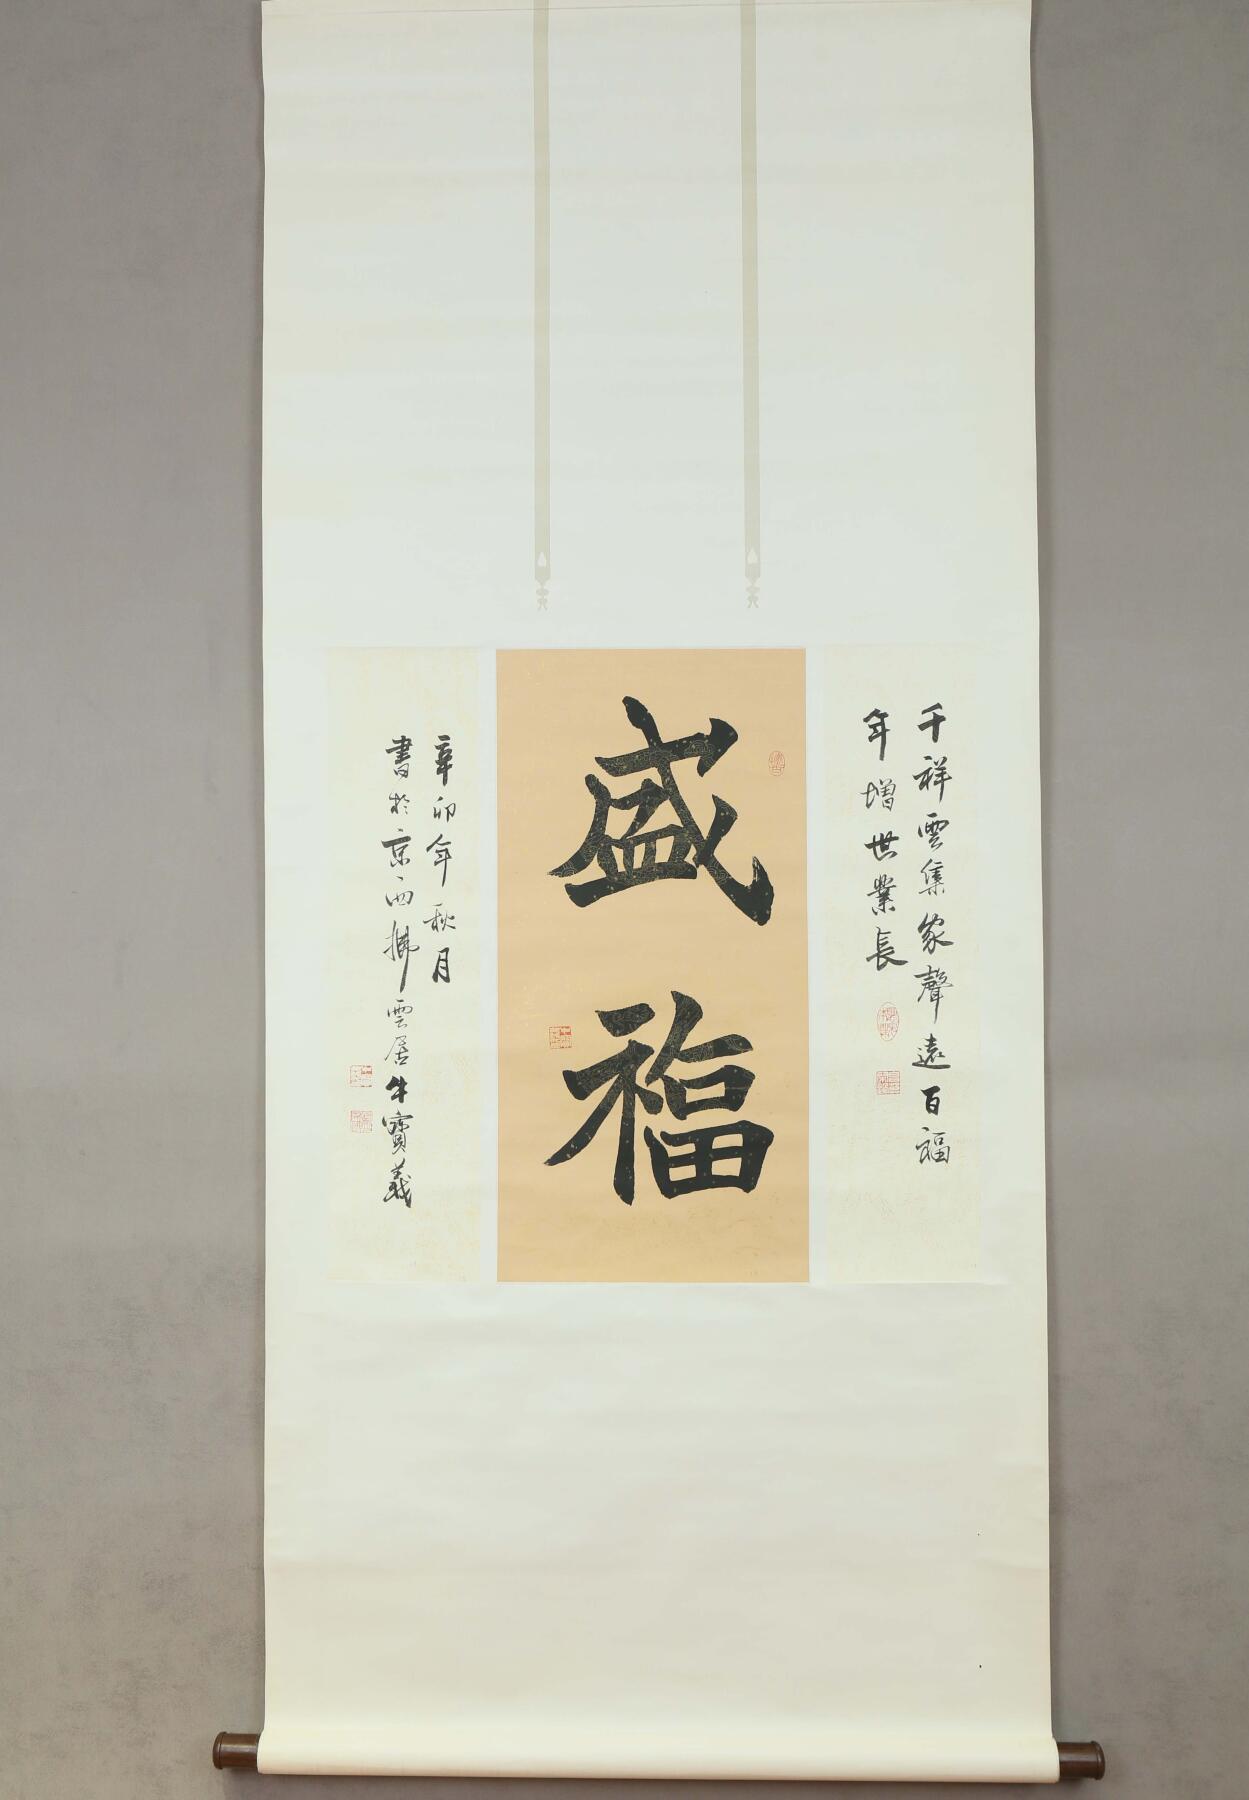 盛福
千祥雲集家聲遠百福
年增世業長
辛卯年秋月
書於京西拂雲居牛寶義